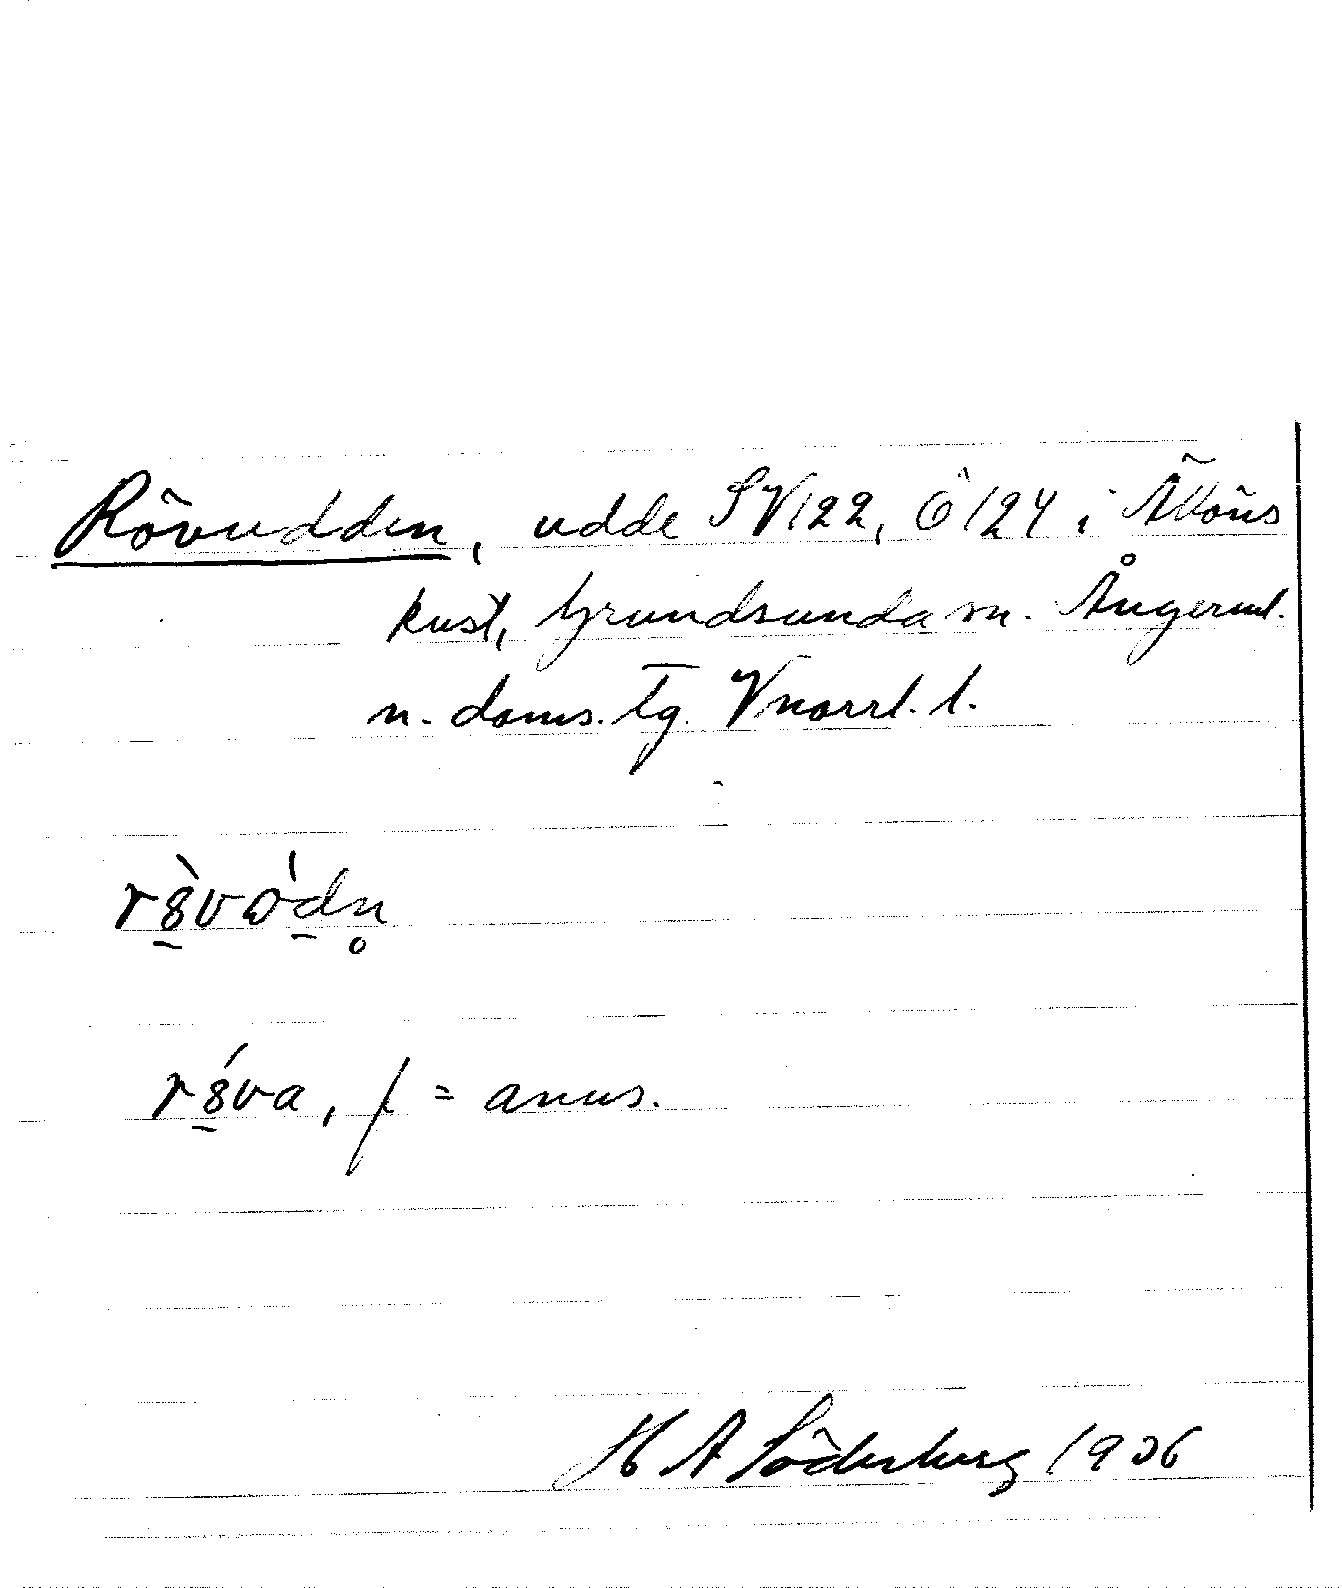 Rövudden, udde SV122, Ö124 i
kust, Grundsunda sn. Ångerml.
n. doms. Tg. Vnorrl. l.
, f = anus.
H A Söderberg 1936